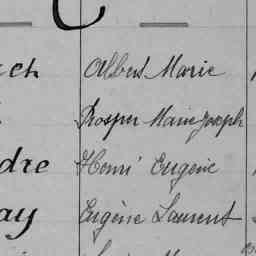 ch Albert Marie
Prosper Marie Joseph
dre Henri Eugène
ay Eugène Laurent